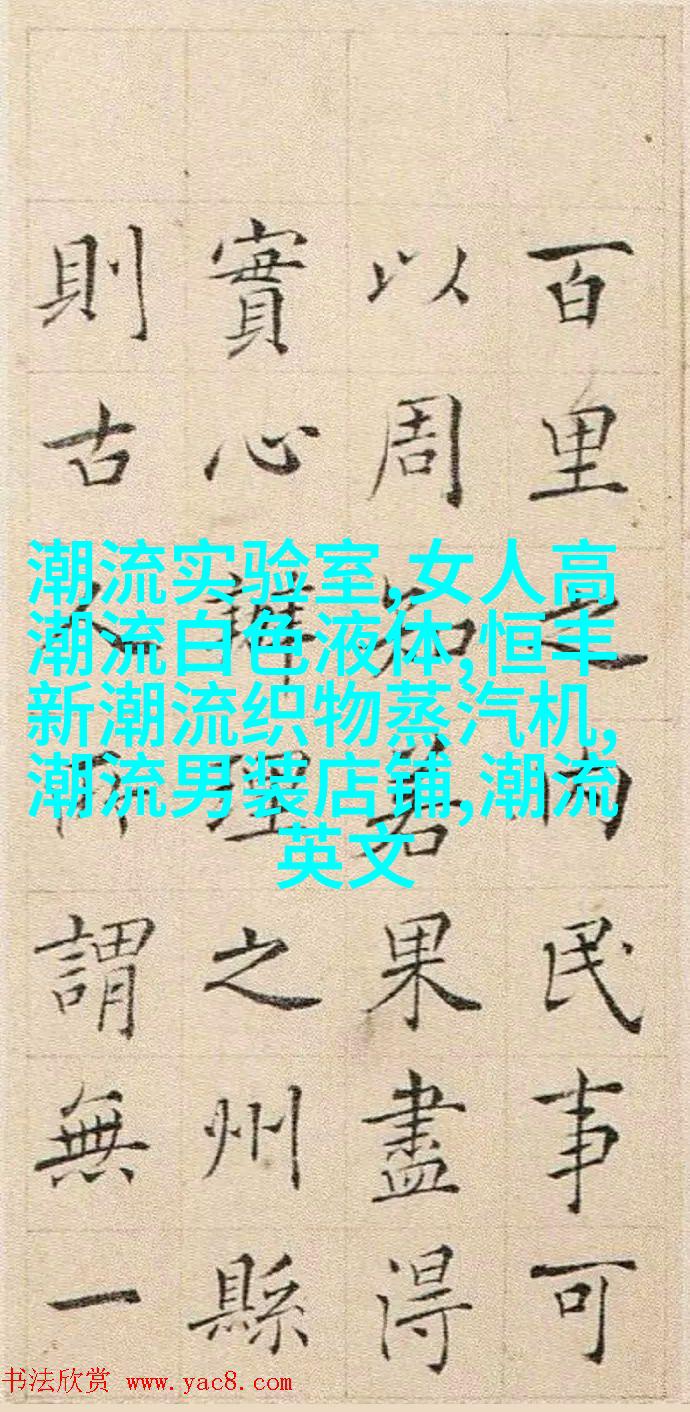 百里之内民事可
以周知若果盡得
實心辦理之州縣
則古人所謂無一
潮流实验室,女人高
潮流白色液体,恒丰
新潮流织物蒸汽机,
潮流男装店铺,潮流
英文
书法欣赏 www.yac8.com